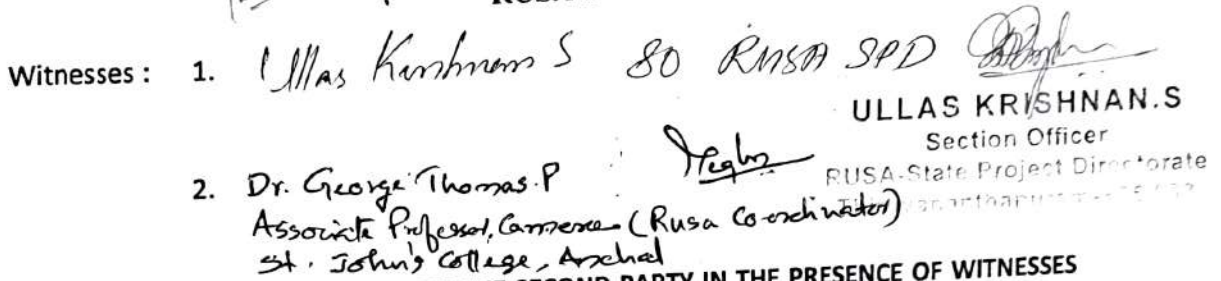 Witnesses : 1. Ullas Krishnan S SO RUSA SPD
ULLAS KRISHNAN.S
Section Officer
RUSA-State Project Directorate
2. Dr. George Thomas.P
Associate Professor, Commerce (Rusa Co-ordinator)
St. John's College, Anchal
SECOND PARTY IN THE PRESENCE OF WITNESSES